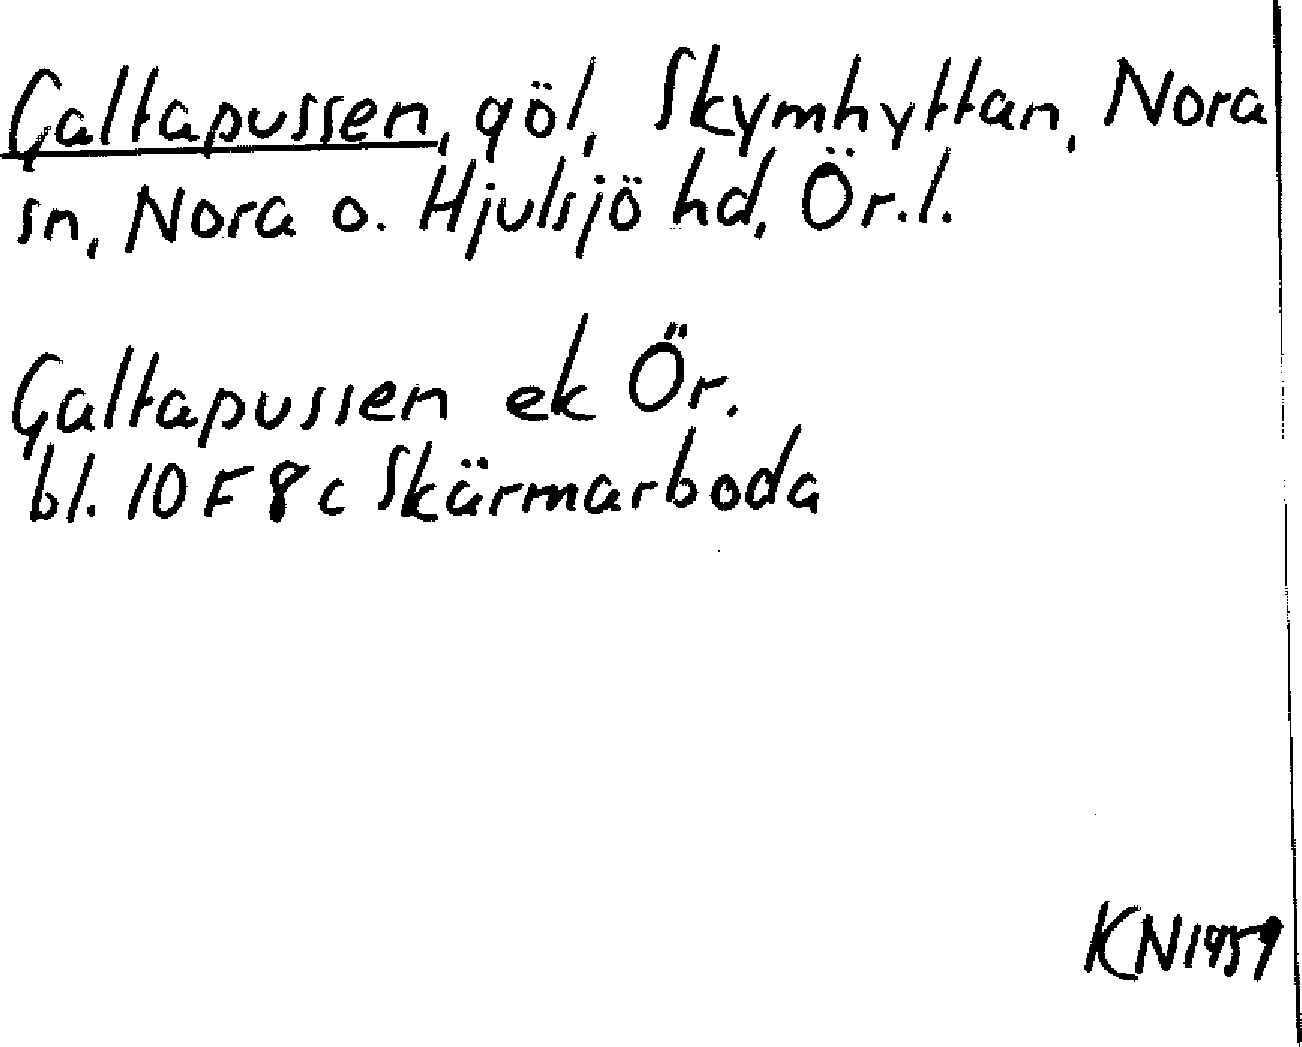 Galtapussen, göl, Skymhyttan, Nora
sn, Nora o. Hjulsjö hd, Ör.l.
Galtapussen ek Ör.
bl. 10F8c Skärmarboda
KN1959